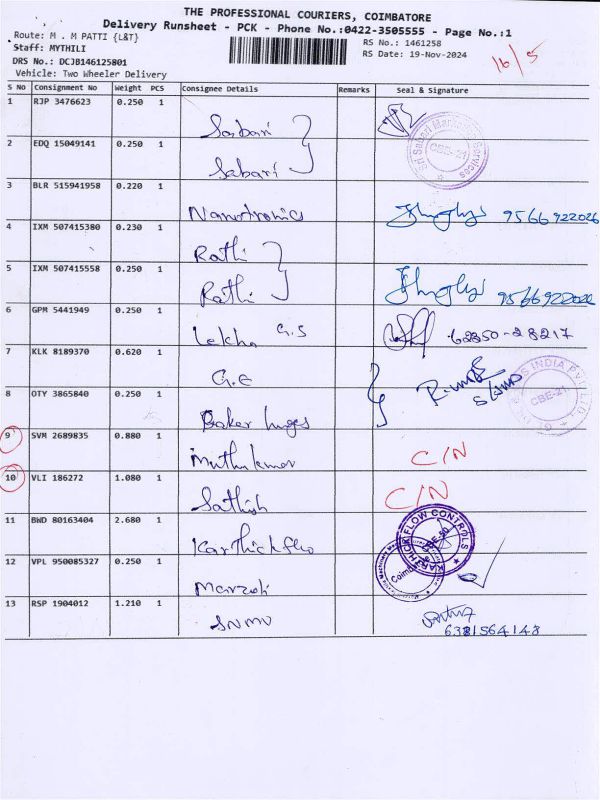 THE PROFESSIONAL COURIERS, COIMBATORE
Delivery Runsheet - PCK - Phone No.:0422-3505555 - Page No.:1
Route: M . M PATTI {L&T}
Staff: MYTHILI
DRS No.: DCJB146125801
Vehicle: Two Wheeler Delivery
RS No.: 1461258
RS Date: 19-Nov-2024
16/5
S No Consignment No Weight PCS Consignee Details Remarks Seal & Signature
1 RJP 3476623 0.250 1 Sabari
2 EDQ 15049141 0.250 1 Sabari
Sri Sabari Marketing Services
CBE-21
3 BLR 515941958 0.220 1 Nanotronics 9566922026
4 IXM 507415380 0.230 1 Rathi
5 IXM 507415558 0.250 1 Rathi 9566922026
6 GPM 5441949 0.250 1 Lekha G.S 62850-28217
7 KLK 8189370 0.620 1 G.E
8 OTY 3865840 0.250 1 Baker huges
INDIA PVT LTD
CBE-21
9 SVM 2689835 0.880 1 Muthukumar C/N
10 VLI 186272 1.080 1 Sathish C/N
11 BWD 80163404 2.680 1 Karthickflo
KARTHICK FLOW CONTROLS
12 VPL 950085327 0.250 1 Marzoli
Coimbatore
13 RSP 1904012 1.210 1 SNMV
6381564148